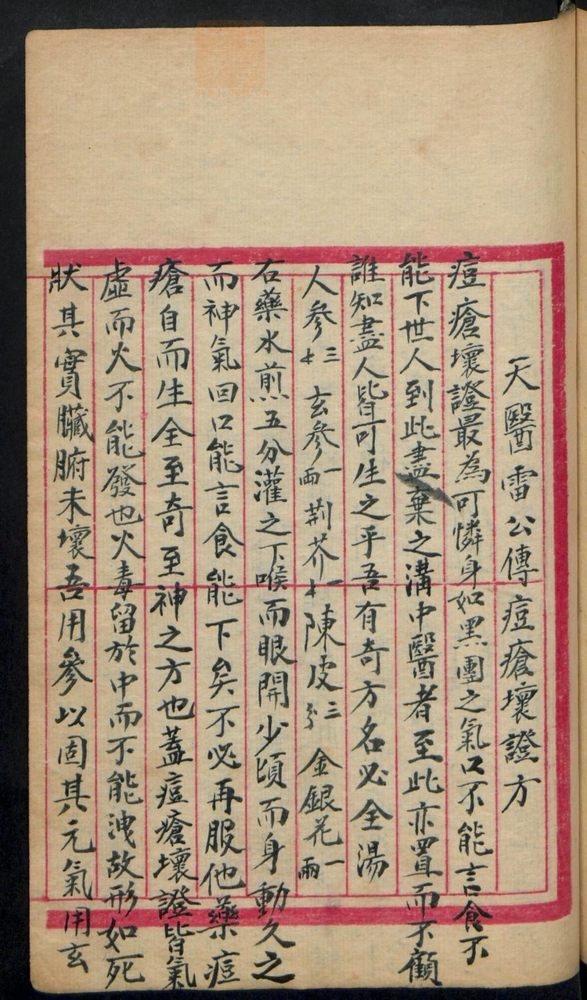 天醫雷公傳痘瘡壞證方
痘瘡壞證最為可憐身如黑團之氣口不能言食不
能下世人到此盡棄之溝中醫者至此亦置而不顧
誰知盡人皆可生之乎吾有奇方名必全湯
人參三斗 玄參一兩 荊芥一斗 陳皮三分 金銀花一兩
右藥水煎五分灌之下喉而眼開少頃而身動久之
而神氣回口能言食能下矣不必再服他藥痘
瘡自而生全至奇至神之方也蓋痘瘡壞證皆氣
虛而火不能發也火毒留於中而不能洩故形如死
狀其實臟腑未壞吾用參以固其元氣用玄